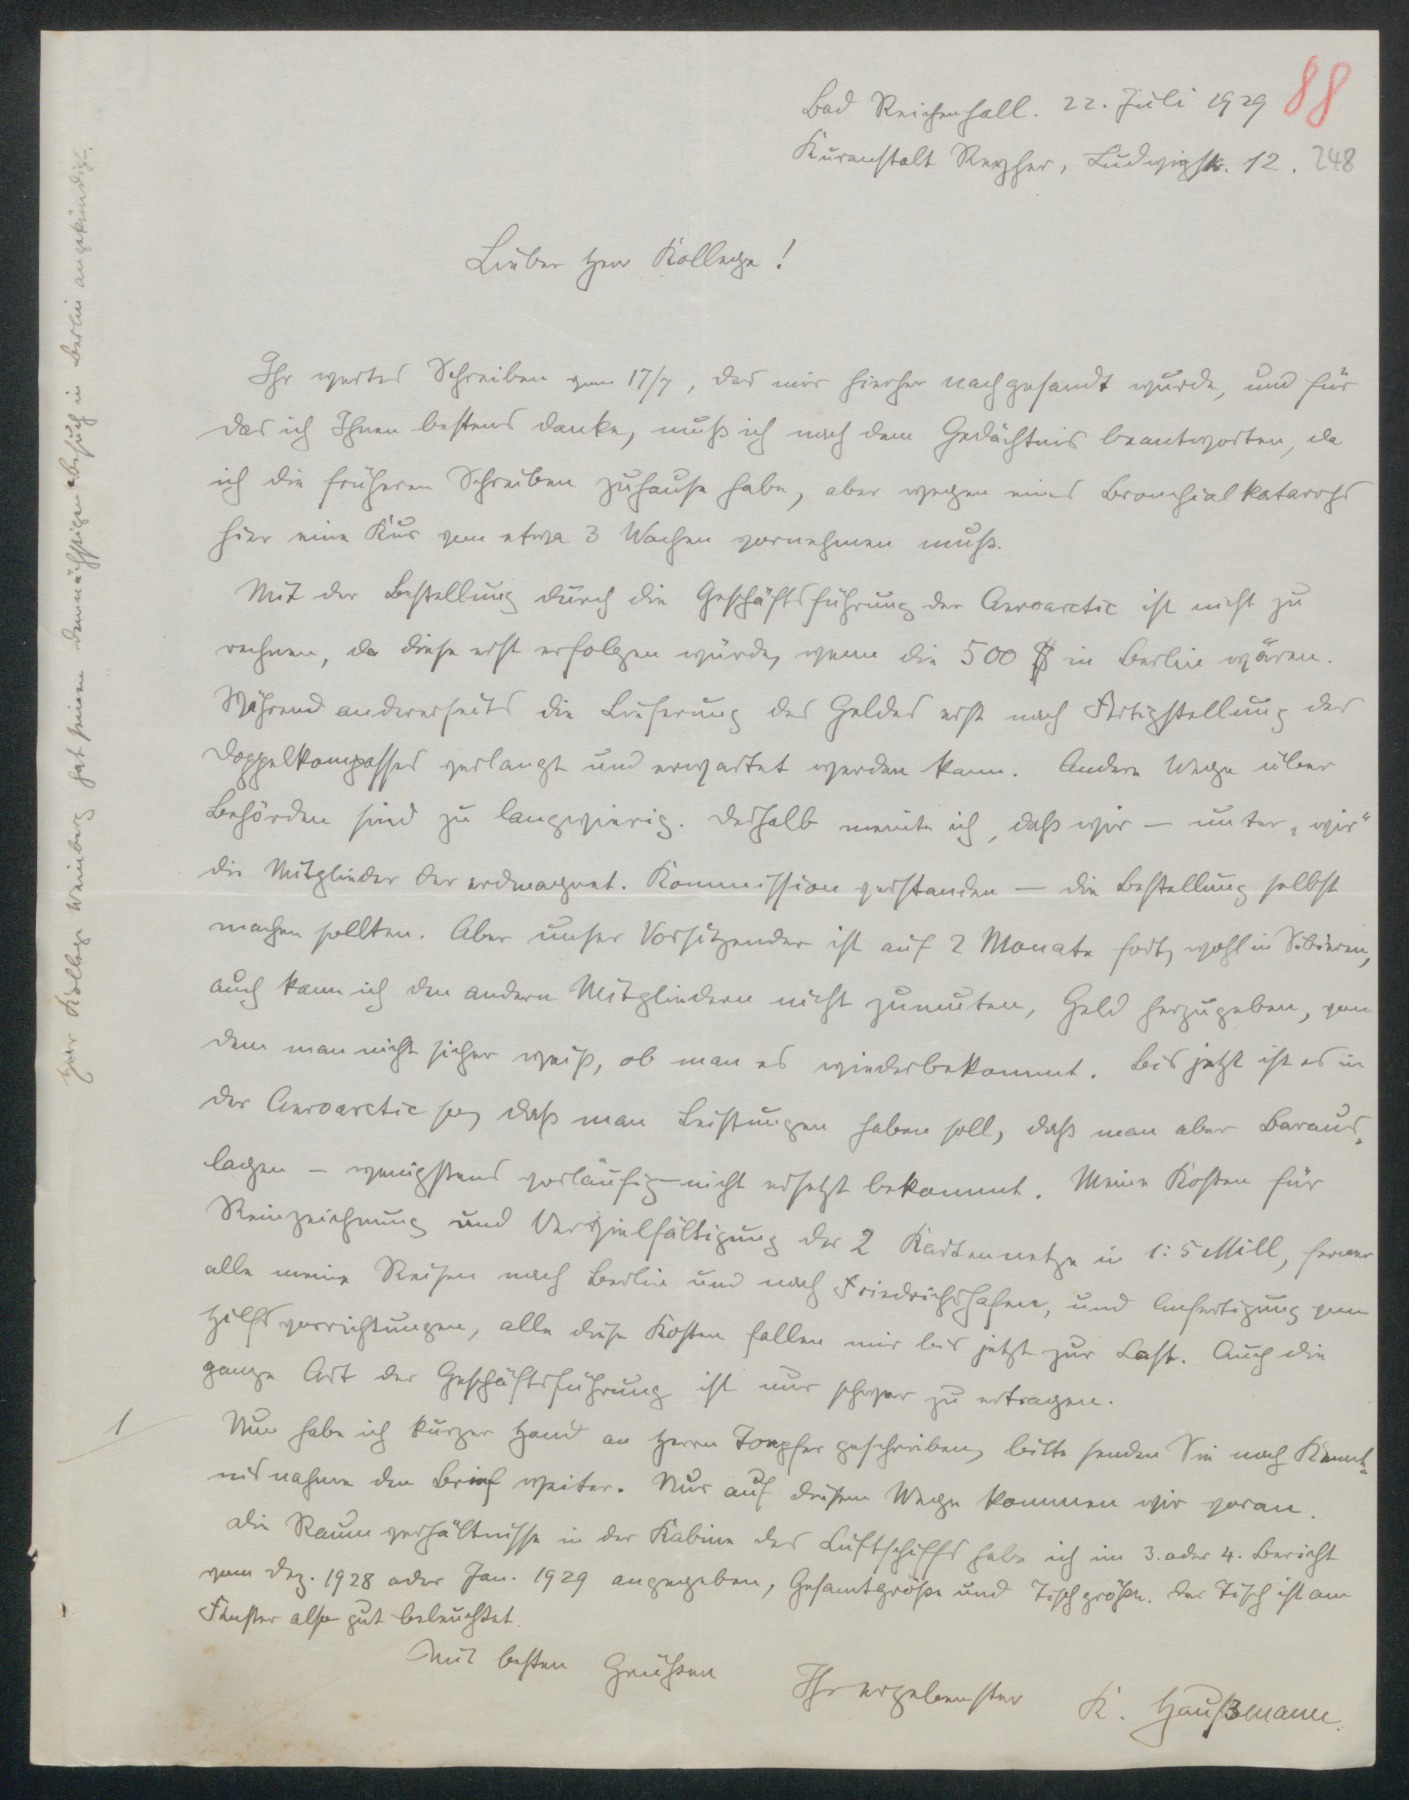 88
Bad Reichenhall. 22. Juli 1929
Kuranstalt Reyher, Ludwigstr. 12.
248
Lieber Herr Kollege!
Ihr wertes Schreiben vom 17/7, das mir hierher nachgesandt wurde, und für
das ich Ihnen bestens danke, muß ich nach dem Gedächtnis beantworten, da
ich die früheren Schreiben zuhause habe, aber wegen eines Bronchialkatarrhs
hier eine Kur von etwa 3 Wochen vornehmen muß.
Mit der Bestellung durch die Geschäftsführung der Aeroarctic ist nicht zu
rechnen, da diese erst erfolgen würde, wenn die 500 $ in Berlin wären.
Während anderseits die Lieferung des Geldes erst nach Fertigstellung des
Doppelkompasses verlangt und erwartet werden kann. Andere Wege über
Behörden sind zu langwierig. Deshalb meinte ich, daß wir – unter „wir"
die Mitglieder der erdmagnet. Kommission verstanden – die Bestellung selbst
machen sollten. Aber unser Vorsitzender ist auf 2 Monate fort, wohl in Sibirien,
auch kann ich den andern Mitgliedern nicht zumuten, Geld herzugeben, von
dem man nicht sicher weiß, ob man es wiederbekommt. Bis jetzt ist es in
der Aeroarctic so, daß man Leistungen haben soll, daß man aber Baraus-
lagen – wenigstens vorläufig – nicht ersetzt bekommt. Meine Kosten für
Reinzeichnung und Vervielfältigung der 2 Kartennetze in 1:5 Mill, ferner
alle meine Reisen nach Berlin und nach Friedrichshafen, und Anfertigung von
Hilfsvorrichtungen, alle diese Kosten fallen mir bis jetzt zur Last. Auch die
ganze Art der Geschäftsführung ist nur schwer zu ertragen.
1
Nun habe ich kurzer Hand an Herrn Toepfer geschrieben, bitte senden Sie nach Kennt-
nisnahme den Brief weiter. Nur auf diesem Wege kommen wir voran.
Die Raumverhältnisse in der Kabine des Luftschiffs habe ich im 3. oder 4. Bericht
vom Dez. 1928 oder Jan. 1929 angegeben, Gesamtgröße und Tischgröße. Der Tisch ist am
Fenster also gut beleuchtet.
Mit besten Grüßen
Ihr ergebenster
K. Haußmann.
Herr Kollege Weinberg hat seinen demnächstigen Besuch in Berlin angekündigt.